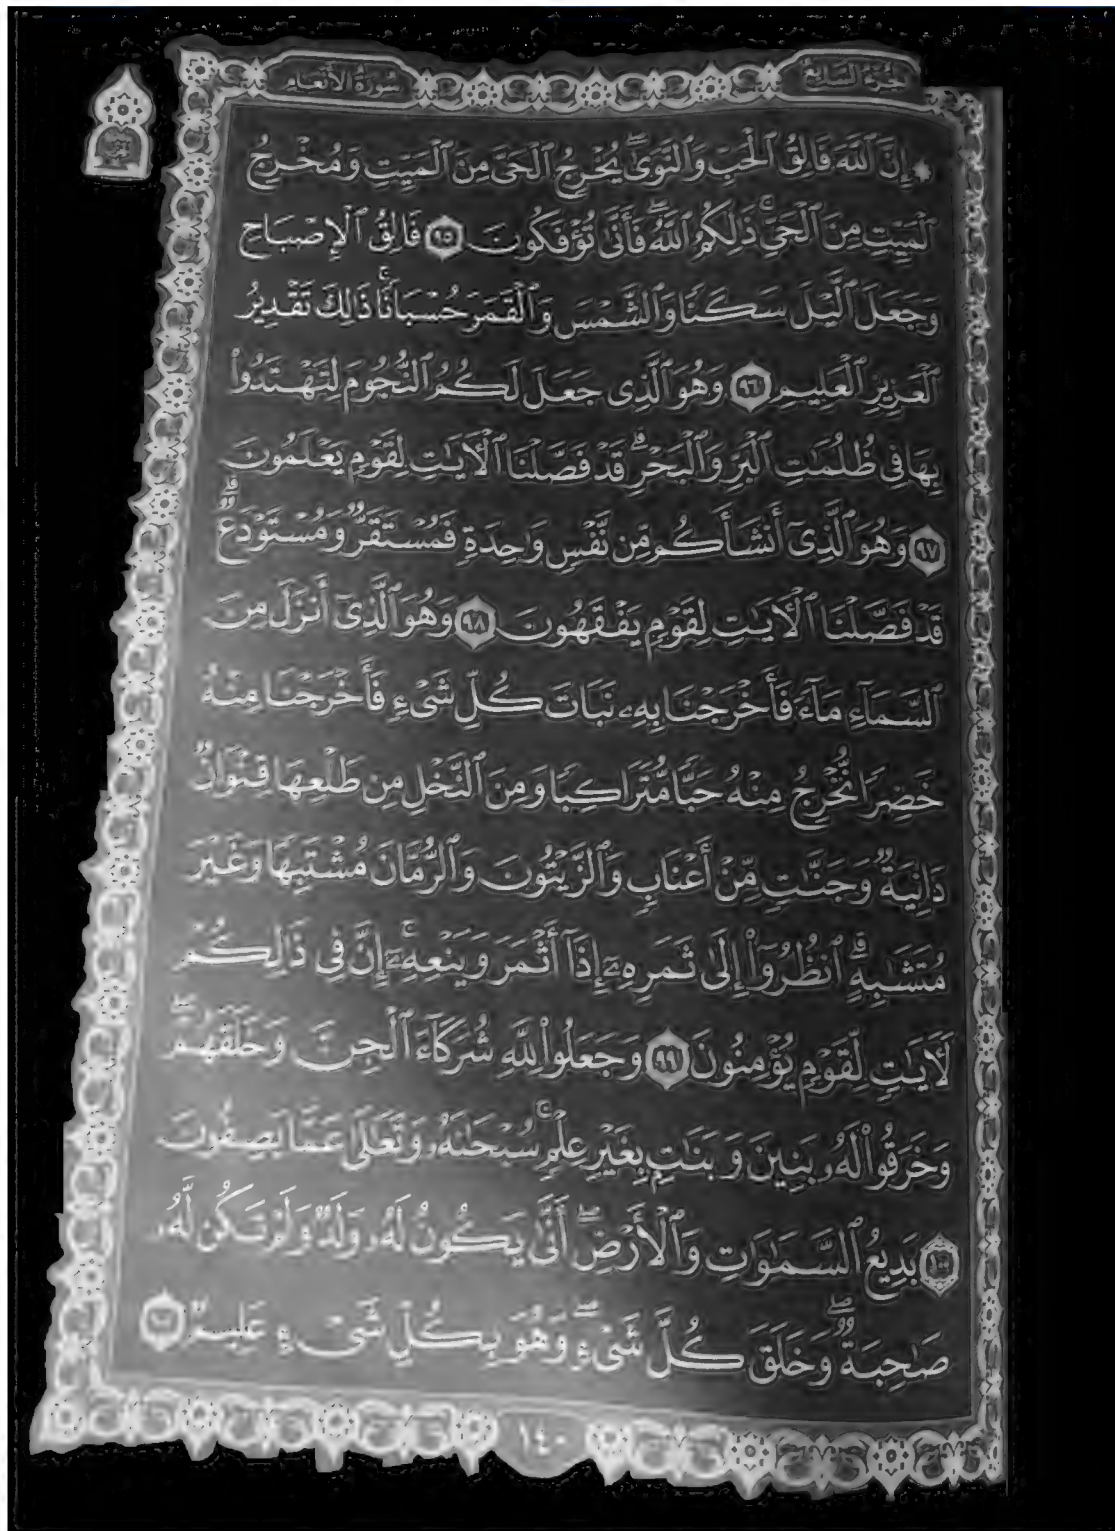 الجزء السابع
سورة الأنعام
۞ إِنَّ ٱللَّهَ فَالِقُ ٱلْحَبِّ وَٱلنَّوَىٰۖ يُخْرِجُ ٱلْحَىَّ مِنَ ٱلْمَيِّتِ وَمُخْرِجُ
ٱلْمَيِّتِ مِنَ ٱلْحَىِّۚ ذَٰلِكُمُ ٱللَّهُۖ فَأَنَّىٰ تُؤْفَكُونَ ٩٥ فَالِقُ ٱلْإِصْبَاحِ
وَجَعَلَ ٱلَّيْلَ سَكَنًا وَٱلشَّمْسَ وَٱلْقَمَرَ حُسْبَانًاۚ ذَٰلِكَ تَقْدِيرُ
ٱلْعَزِيزِ ٱلْعَلِيمِ ٩٦ وَهُوَ ٱلَّذِى جَعَلَ لَكُمُ ٱلنُّجُومَ لِتَهْتَدُوا۟
بِهَا فِى ظُلُمَٰتِ ٱلْبَرِّ وَٱلْبَحْرِۗ قَدْ فَصَّلْنَا ٱلْءَايَٰتِ لِقَوْمٍ يَعْلَمُونَ
٩٧ وَهُوَ ٱلَّذِىٓ أَنشَأَكُم مِّن نَّفْسٍ وَٰحِدَةٍ فَمُسْتَقَرٌّ وَمُسْتَوْدَعٌۗ
قَدْ فَصَّلْنَا ٱلْءَايَٰتِ لِقَوْمٍ يَفْقَهُونَ ٩٨ وَهُوَ ٱلَّذِىٓ أَنزَلَ مِنَ
ٱلسَّمَآءِ مَآءً فَأَخْرَجْنَا بِهِۦ نَبَاتَ كُلِّ شَىْءٍ فَأَخْرَجْنَا مِنْهُ
خَضِرًا نُّخْرِجُ مِنْهُ حَبًّا مُّتَرَاكِبًا وَمِنَ ٱلنَّخْلِ مِن طَلْعِهَا قِنْوَانٌ
دَانِيَةٌ وَجَنَّٰتٍ مِّنْ أَعْنَابٍ وَٱلزَّيْتُونَ وَٱلرُّمَّانَ مُشْتَبِهًا وَغَيْرَ
مُتَشَٰبِهٍۗ ٱنظُرُوٓا۟ إِلَىٰ ثَمَرِهِۦٓ إِذَآ أَثْمَرَ وَيَنْعِهِۦٓۚ إِنَّ فِى ذَٰلِكُمْ
لَءَايَٰتٍ لِّقَوْمٍ يُؤْمِنُونَ ٩٩ وَجَعَلُوا۟ لِلَّهِ شُرَكَآءَ ٱلْجِنَّ وَخَلَقَهُمْۖ
وَخَرَقُوا۟ لَهُۥ بَنِينَ وَبَنَٰتٍۭ بِغَيْرِ عِلْمٍۚ سُبْحَٰنَهُۥ وَتَعَٰلَىٰ عَمَّا يَصِفُونَ
١٠٠ بَدِيعُ ٱلسَّمَٰوَٰتِ وَٱلْأَرْضِۖ أَنَّىٰ يَكُونُ لَهُۥ وَلَدٌ وَلَمْ تَكُن لَّهُۥ
صَٰحِبَةٌۖ وَخَلَقَ كُلَّ شَىْءٍۖ وَهُوَ بِكُلِّ شَىْءٍ عَلِيمٌ ١٠١
١٤٠